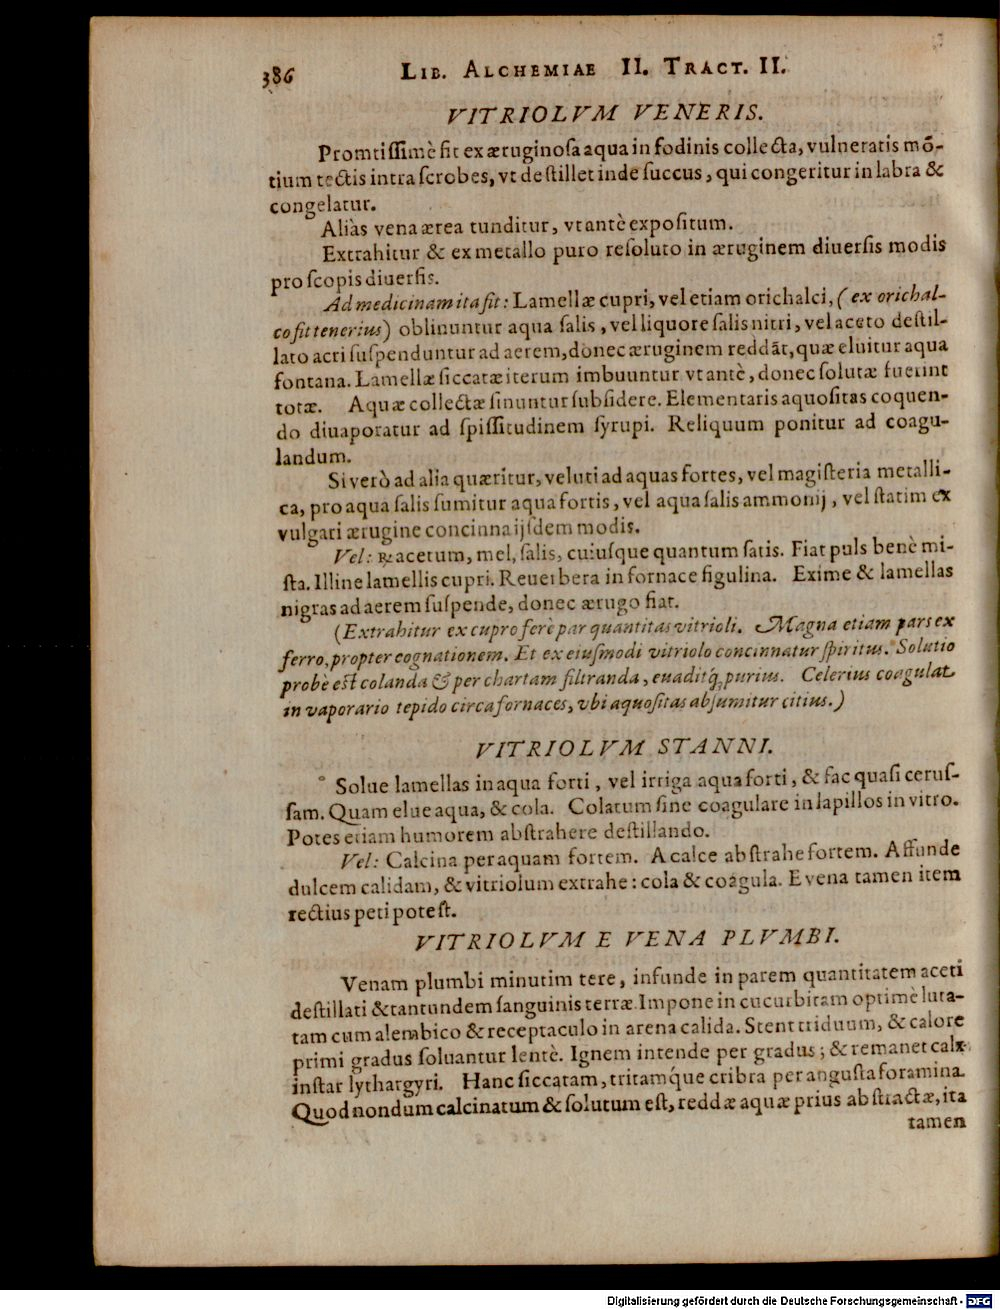 386 LIB. ALCHEMIAE II. TRACT. II.
VITRIOLVM VENERIS.
Promtiſſimè fit ex æruginoſa aqua in fodinis collecta, vulneratis mō-
tium tectis intra ſcrobes, vt deſtillet inde ſuccus, qui congeritur in labra &
congelatur.
Aliàs vena ærea tunditur, vt antè expoſitum.
Extrahitur & ex metallo puro reſoluto in æruginem diuerſis modis
pro ſcopis diuerſis.
Ad medicinam ita fit: Lamellæ cupri, vel etiam orichalci, (ex orichal-
co fit tenerius) oblinuntur aqua ſalis, vel liquore ſalis nitri, vel aceto deſtil-
lato acri ſuſpenduntur ad aerem, donec æruginem reddāt, quæ eluitur aqua
fontana. Lamellæ ſiccatæ iterum imbuuntur vt antè, donec ſolutæ fuerint
totæ. Aquæ collectæ ſinuntur ſubſidere. Elementaris aquoſitas coquen-
do diuaporatur ad ſpiſſitudinem ſyrupi. Reliquum ponitur ad coagu-
landum.
Si verò ad alia quæritur, veluti ad aquas fortes, vel magiſteria metalli-
ca, pro aqua ſalis ſumitur aqua fortis, vel aqua ſalis ammonij, vel ſtatim ex
vulgari ærugine concinna ijſdem modis.
Vel: ℞ acetum, mel, ſalis, cuiuſque quantum ſatis. Fiat puls benè mi-
ſta. Illine lamellis cupri. Reuerbera in fornace figulina. Exime & lamellas
nigras ad aerem ſuſpende, donec ærugo fiat.
(Extrahitur ex cupro ferè par quantitas vitrioli. Magna etiam pars ex
ferro, propter cognationem. Et ex eiuſmodi vitriolo concinnatur ſpiritus. Solutio
probè eſt colanda & per chartam filtranda, euaditq́; purius. Celerius coagulat
in vaporario tepido circa fornaces, vbi aquoſitas abſumitur citius.)
VITRIOLVM STANNI.
Solue lamellas in aqua forti, vel irriga aqua forti, & fac quaſi ceruſ-
ſam. Quam elue aqua, & cola. Colatum ſine coagulare in lapillos in vitro.
Potes etiam humorem abſtrahere deſtillando.
Vel: Calcina per aquam fortem. A calce abſtrahe fortem. Affunde
dulcem calidam, & vitriolum extrahe: cola & coagula. E vena tamen item
rectius peti poteſt.
VITRIOLVM E VENA PLVMBI.
Venam plumbi minutim tere, infunde in parem quantitatem aceti
deſtillati & tantundem ſanguinis terræ. Impone in cucurbitam optimè luta-
tam cum alembico & receptaculo in arena calida. Stent triduum, & calore
primi gradus ſoluantur lentè. Ignem intende per gradus; & remanet calx
inſtar lythargyri. Hanc ſiccatam, tritamq́ue cribra per anguſta foramina.
Quod nondum calcinatum & ſolutum eſt, redd æ aquæ prius abſtractæ, ita
tamen
Digitalisierung gefördert durch die Deutsche Forschungsgemeinschaft - DFG